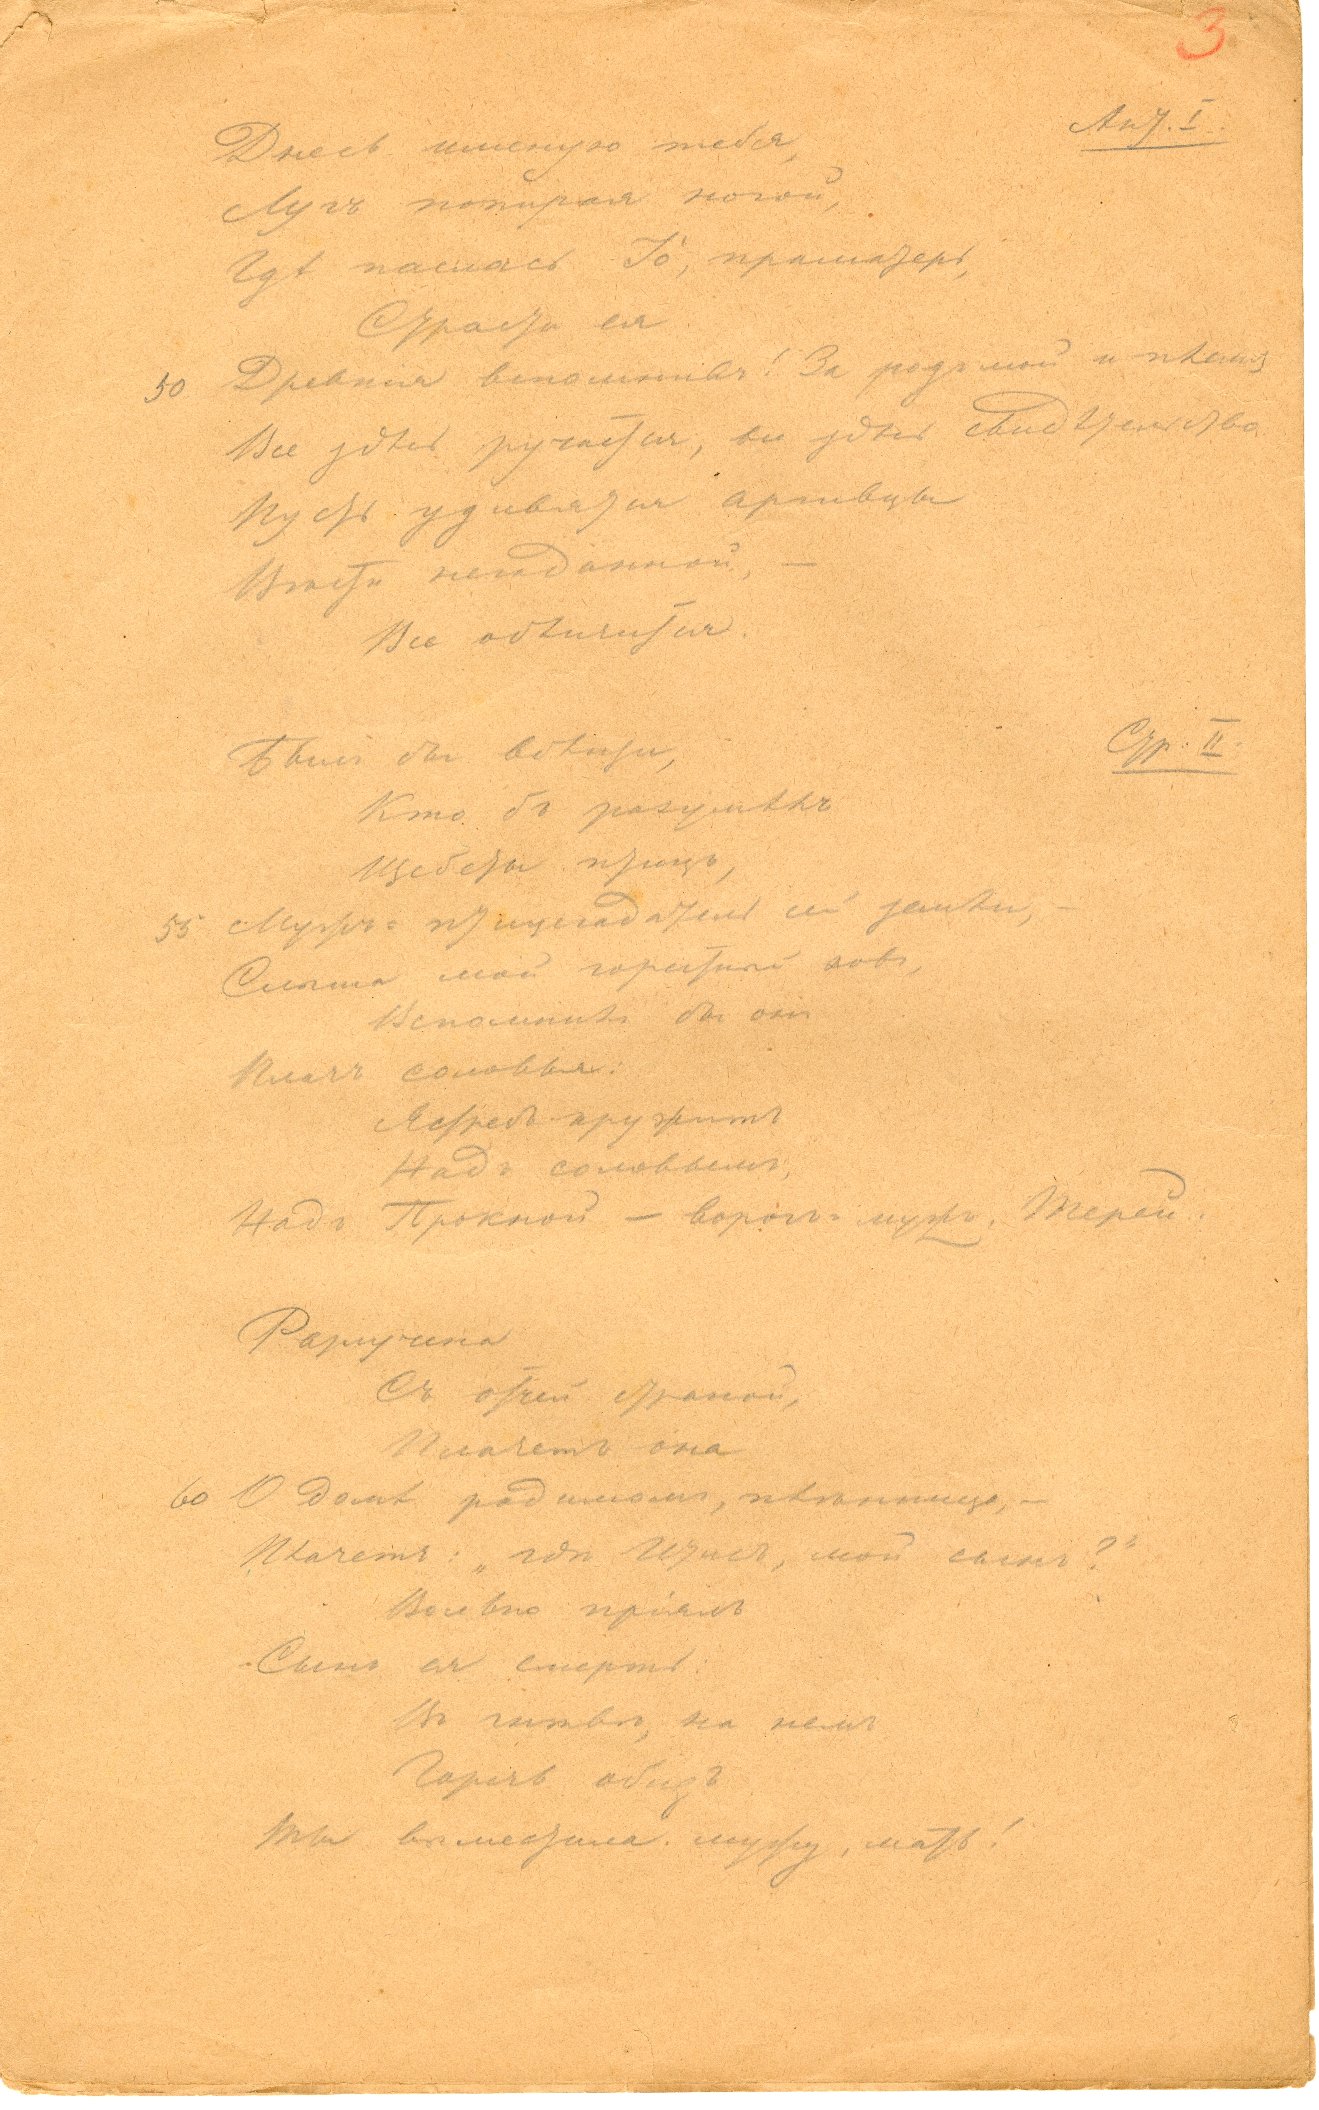 3
Ант. I.
Днесь именую тебя,
Лугъ попирая ногой,
Гдѣ паслась Іо, праматерь,
Страсти ея
50 Древнія вспомнивъ! За родъ мой и племя
Все здѣсь ручается, все здѣсь свидѣтельство.
Пусть удивятся аргивцы
Вѣсти нежданной, —
Все объяснится.
Стр. II.
Былъ бы вблизи,
Кто бъ разумѣлъ
Щебеты птицъ,
55 Мужъ-птицегадатель сей земли, —
Слыша мой горестный зовъ,
Вспомнилъ бы онъ
Плачъ соловья:
Ястребъ кружитъ
Надъ соловьемъ,
Надъ Прокной — ворогъ-мужъ, Терей.
Разлучена
Съ отчей страной,
Плачетъ она
60 О домѣ родимомъ, изгнанница, —
Плачетъ: „гдѣ Итисъ, мой сынъ?"
пріялъ
Сынъ ея смерть:
Въ гнѣвѣ, на немъ
Горечь обидъ
Ты выместила мужу, мать!